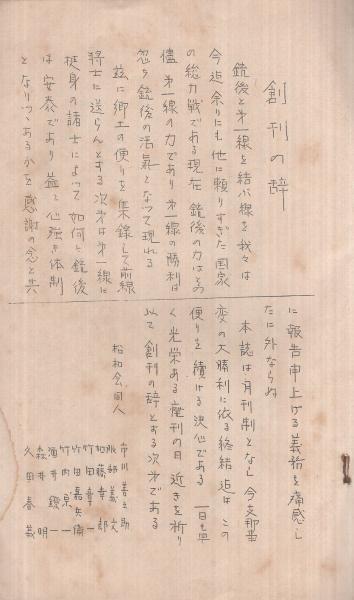 創刊の辞
銃後と第一線を結ぶ線を我々は
今迄余りにも他に頼りすぎた国家
の総力戦である現在 銃後の力はその
儘第一線の力であり第一線の勝利は
忽ち銃後の活氣となつて現れる
茲に郷土の便りを集録して前線
将士に送らんとする次第は第一線に
挺身の諸士によつて 如何に銃後
は安泰であり益々心強き体制
となりつゝあるかを感謝の念と共
に報告申上げる義務を痛感し
たに外ならぬ
本誌は月刊制となし今支那事
変の大勝利に依る終結迄はこの
便りを續ける決心である 一日も早
く光栄ある廃刊の日近きを祈り
以て創刊の辞とする次第である
昭和会同人
市川善之助
義文
加藤幸郎
竹田章一
竹田嘉兵衛
竹内京一
酒井鐐一
森井明
久田春義